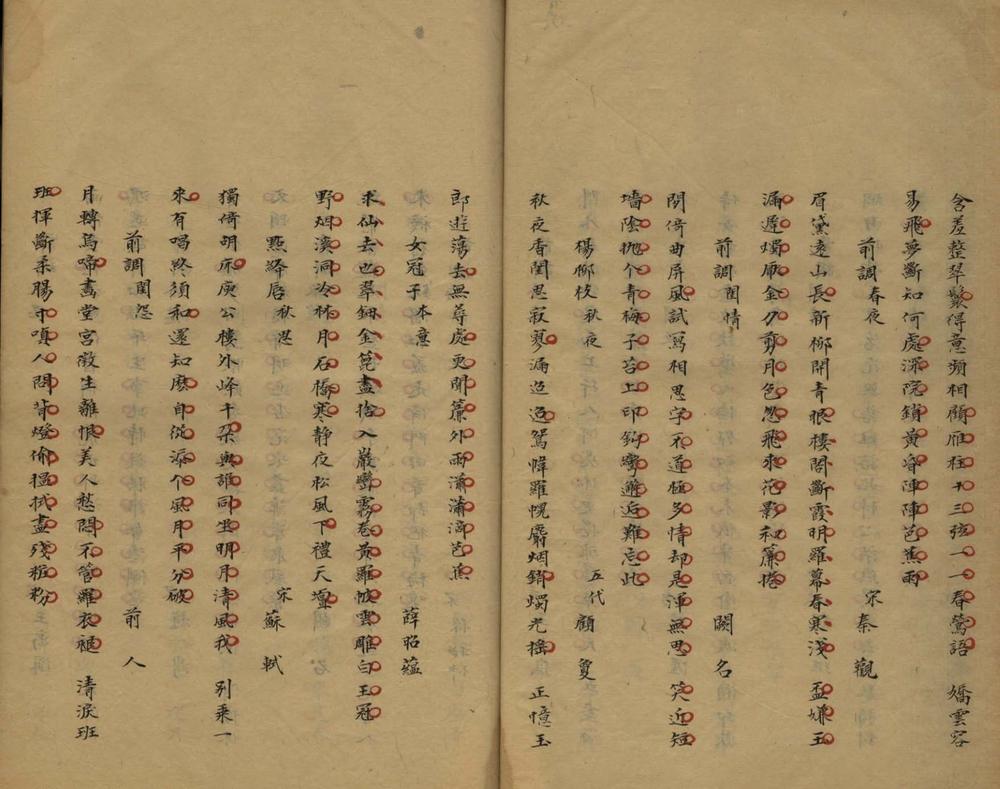 含羞整翠鬟得意頻相顧雁柱十三弦一一春鶯語 嬌雲容
易飛夢斷知何處深院鎖黃昏陣陣芭蕉雨
前調春夜 宋秦觀
眉黛遠山長新柳開青眼樓閣斷霞明羅幕春寒淺 盃嫌玉
漏遲燭厭金刀剪月色忽飛來花影和簾捲
前調閨情 闕名
閒倚曲屏風試寫相思字不道極多情却是渾無思 笑近短
墻陰拋个青梅子苔上印鈎彎邂逅難忘此
楊柳枝秋夜 五代顧敻
秋夜香閨思寂寥漏迢迢鴛幃羅幌麝烟銷燭光搖 正憶玉
郎遊蕩去無尋處更聞簾外雨瀟瀟滴芭蕉
女冠子本意 薛昭蘊
求仙去也翠鈿金篦盡捨入巖巒霧卷黃羅帔雲雕白玉冠
野烟溪洞冷林月石橋寒静夜松風下禮天壇
點絳唇秋思 宋蘇軾
獨倚胡床庾公樓外峰千朵與誰同坐明月清風我 别乘一
來有唱終須和還知麽自從添个風月平分破
前調閨怨 前人
月轉烏啼畫堂宮徵生離恨美人愁悶不管羅衣褪 清淚班
班揮斷柔腸寸嗔人問背燈偷揾拭盡殘粧粉